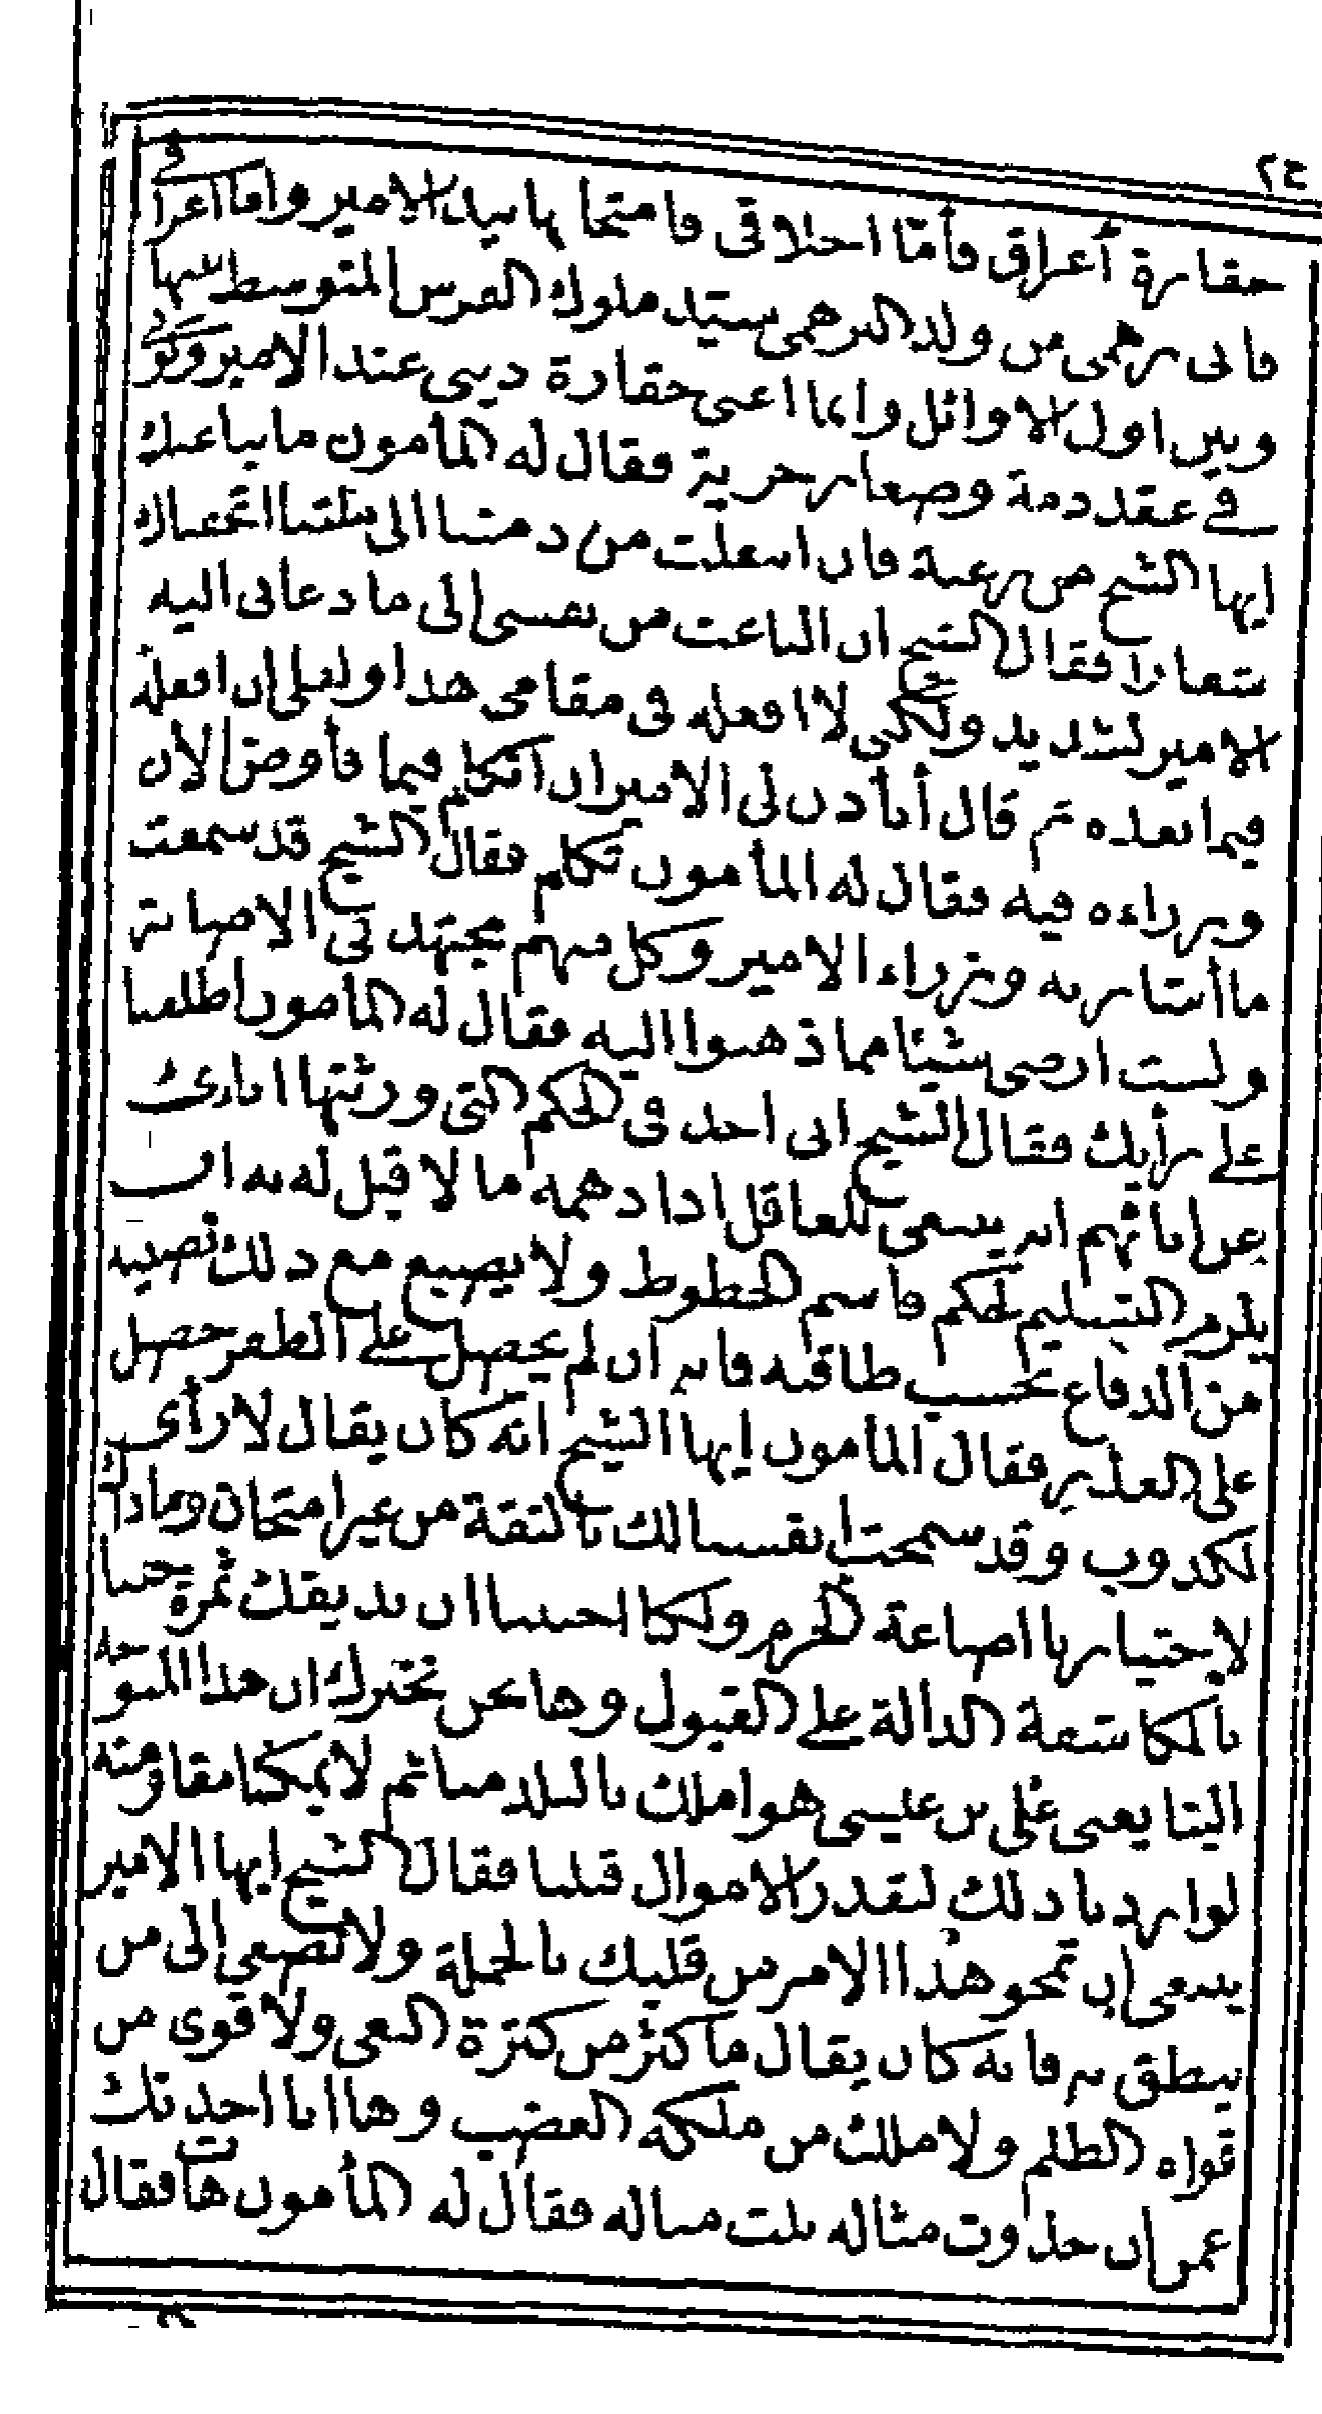 ٢٤
حقارة أعراق فأما اخلاقى فامتحانها بيد الامير واما اعراقى
فانى برهمى من ولد البرهمى سيد ملوك الفرس المتوسط بينها
وبين اول الاوائل وانما اعنى حقارة دينى عند الامير وكونى
فى عقد ذمة وصغار جرية فقال له المأمون ما بنا عنك
ايها الشيخ من رغبة فان انتقلت من ذمتنا الى ملتنا اتخذناك
شعارا فقال الشيخ ان الباعث من نفسى الى ما دعانى اليه
الامير لشديد ولكنى لا افعله فى مقامى هذا ولعلى ان افعله
فيما بعده ثم قال أيأذن لى الامير ان اتكلم فيما فاوض الآن
وزراءه فيه فقال له المأمون تكلم فقال الشيخ قد سمعت
ما أشار به وزراء الامير وكل منهم مجتهد فى الاصابة
ولست ارضى شيئا مما ذهبوا اليه فقال له المأمون اطلعنا
على رأيك فقال الشيخ انى اجد فى الحكم التى ورثتها اباءى
عن اباءهم انه ينبغى للعاقل اذا دهمه ما لا قبل له به ان
يلزم التسليم لحكم قاسم الحظوظ ولا يضيع مع ذلك نصيبه
من الدفاع بحسب طاقته فانه ان لم يحصل على الظفر حصل
على العذر فقال المأمون ايها الشيخ انه كان يقال لا رأى
لكذوب وقد سمحت انفسنا لك بالثقة من غير امتحان وما ذاك
لاختيارنا اضاعة الحزم ولكنا احببنا ان نذيقك ثمرة حبنا
بالمكاشفة الدالة على القبول وها نحن نخبرك ان هذا المتوجه
الينا يعنى على بن عيسى هو املك بالبلد منا ثم لا يمكننا مقاومته
لو اردنا ذلك لتقدر الاموال قبلنا فقال الشيخ ايها الامير
ينبغى ان تمحو هذا الامر من قلبك بالجملة ولا تصغى الى من
ينطق به فانه كان يقال ما كثر من كثرة البغى ولا قوى من
قواه الظلم ولا ملك من ملكه الغضب وها انا احدثك
عمن ان حذوت مثاله نلت مناله فقال له المأمون هات فقال